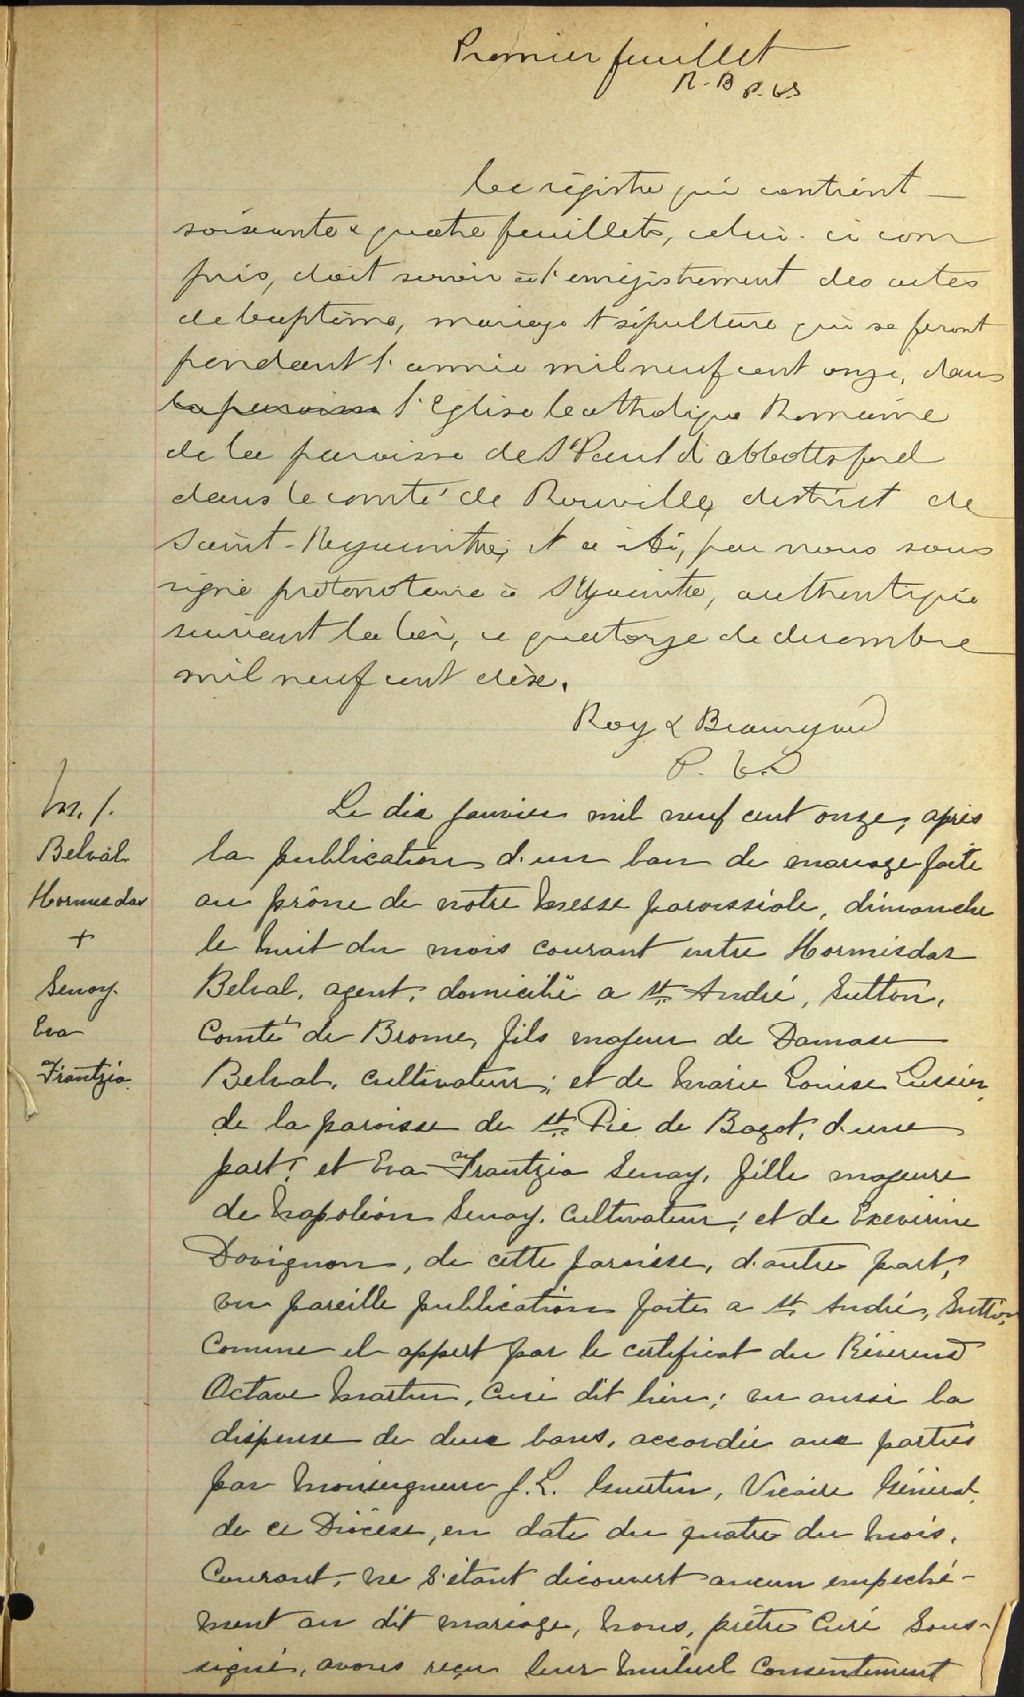 Premier feuillet
R. & B P. C. S
Ce régistre qui contient
soixante & quatre feuillets, celui-ci com
pris, doit servir à l'enregistrement des actes
de baptême, mariage & sépulture qui se feront
pendant l'année mil neuf cent onze, dans
la paroisse l'Eglise Catholique Romaine
de la paroisse de St Paul d'abbottsford
dans le comté de Rouville, district de
Saint-Hyacinthe, et a été, par nous sous
signé protonotaire à St Hyacinthe, authentiqué
suivant la loi, ce quatorze de decembre
mil neuf cent dix.
Roy & Beauregard
P. C. S
M. 1.
Belval
Hormisdas
+
Senay.
Eva
Frantzia.
Le dix janvier mil neuf cent onze, après
la publication d'un ban de mariage faite
au prône de notre Messe paroissiale, dimanche
le huit du mois courant entre Hormisdas
Belval, agent, domicilié a St. André, Sutton,
Comté de Brome, fils majeur de Damase
Belval, cultivateur; et de Marie Louise Lussier,
de la paroisse de St. Pie de Bagot, d'une
part; et Eva Frantzia Senay, fille majeure
de Napoléon Senay, Cultivateur; et de Exevirine
Davignon, de cette paroisse, d'autre part;
vu pareille publication faite a St. André, Sutton,
Comme il appert par le certificat du Révérend
Octave Martin, Curé dit lieu; vu aussi la
dispense de deux bans, accordée aux parties
par Monseigneur J. L. Guertin, Vicaire Général,
de ce Diocèse, en date du quatre du Mois,
Courant, ne s'étant découvert aucun empeché-
ment au dit mariage, Nous, prêtre Curé Sous-
signé, avons reçu leur Mutuel Consentement